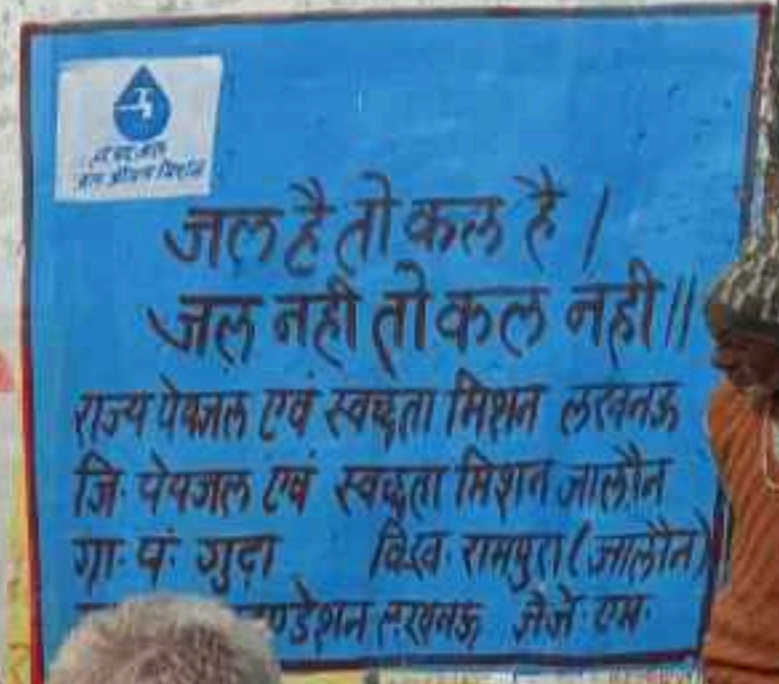 हर घर जल
जल जीवन मिशन
जल है तो कल है।
जल नही तो कल नही॥
राज्य पेयजल एवं स्वच्छता मिशन लखनऊ
जि. पेयजल एवं स्वच्छता मिशन जालौन
ग्रा. पं. गुढ़ा वि.ख. रामपुरा (जालौन)
ण्डेशन लखनऊ जेजे. एम.